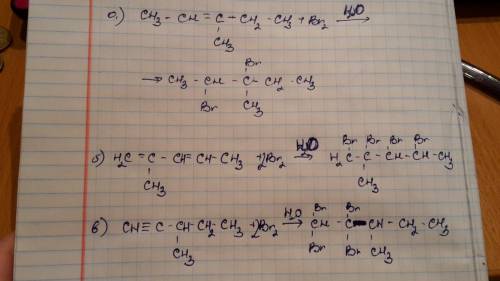 а) CH₃ - CH = C - CH₂ - CH₃ + Br₂ H₂O →
CH₃
Br
→ CH₃ - CH - C - CH₂ - CH₃
Br CH₃
б) H₂C = C - CH = CH - CH₃ + 2Br₂ H₂O → H₂C - C - CH - CH - CH₃
Br Br Br Br
CH₃ CH₃
в) CH ≡ C - CH - CH₂ - CH₃ + 2Br₂ H₂O → CH - C - CH - CH₂ - CH₃
Br Br
CH₃ Br Br CH₃